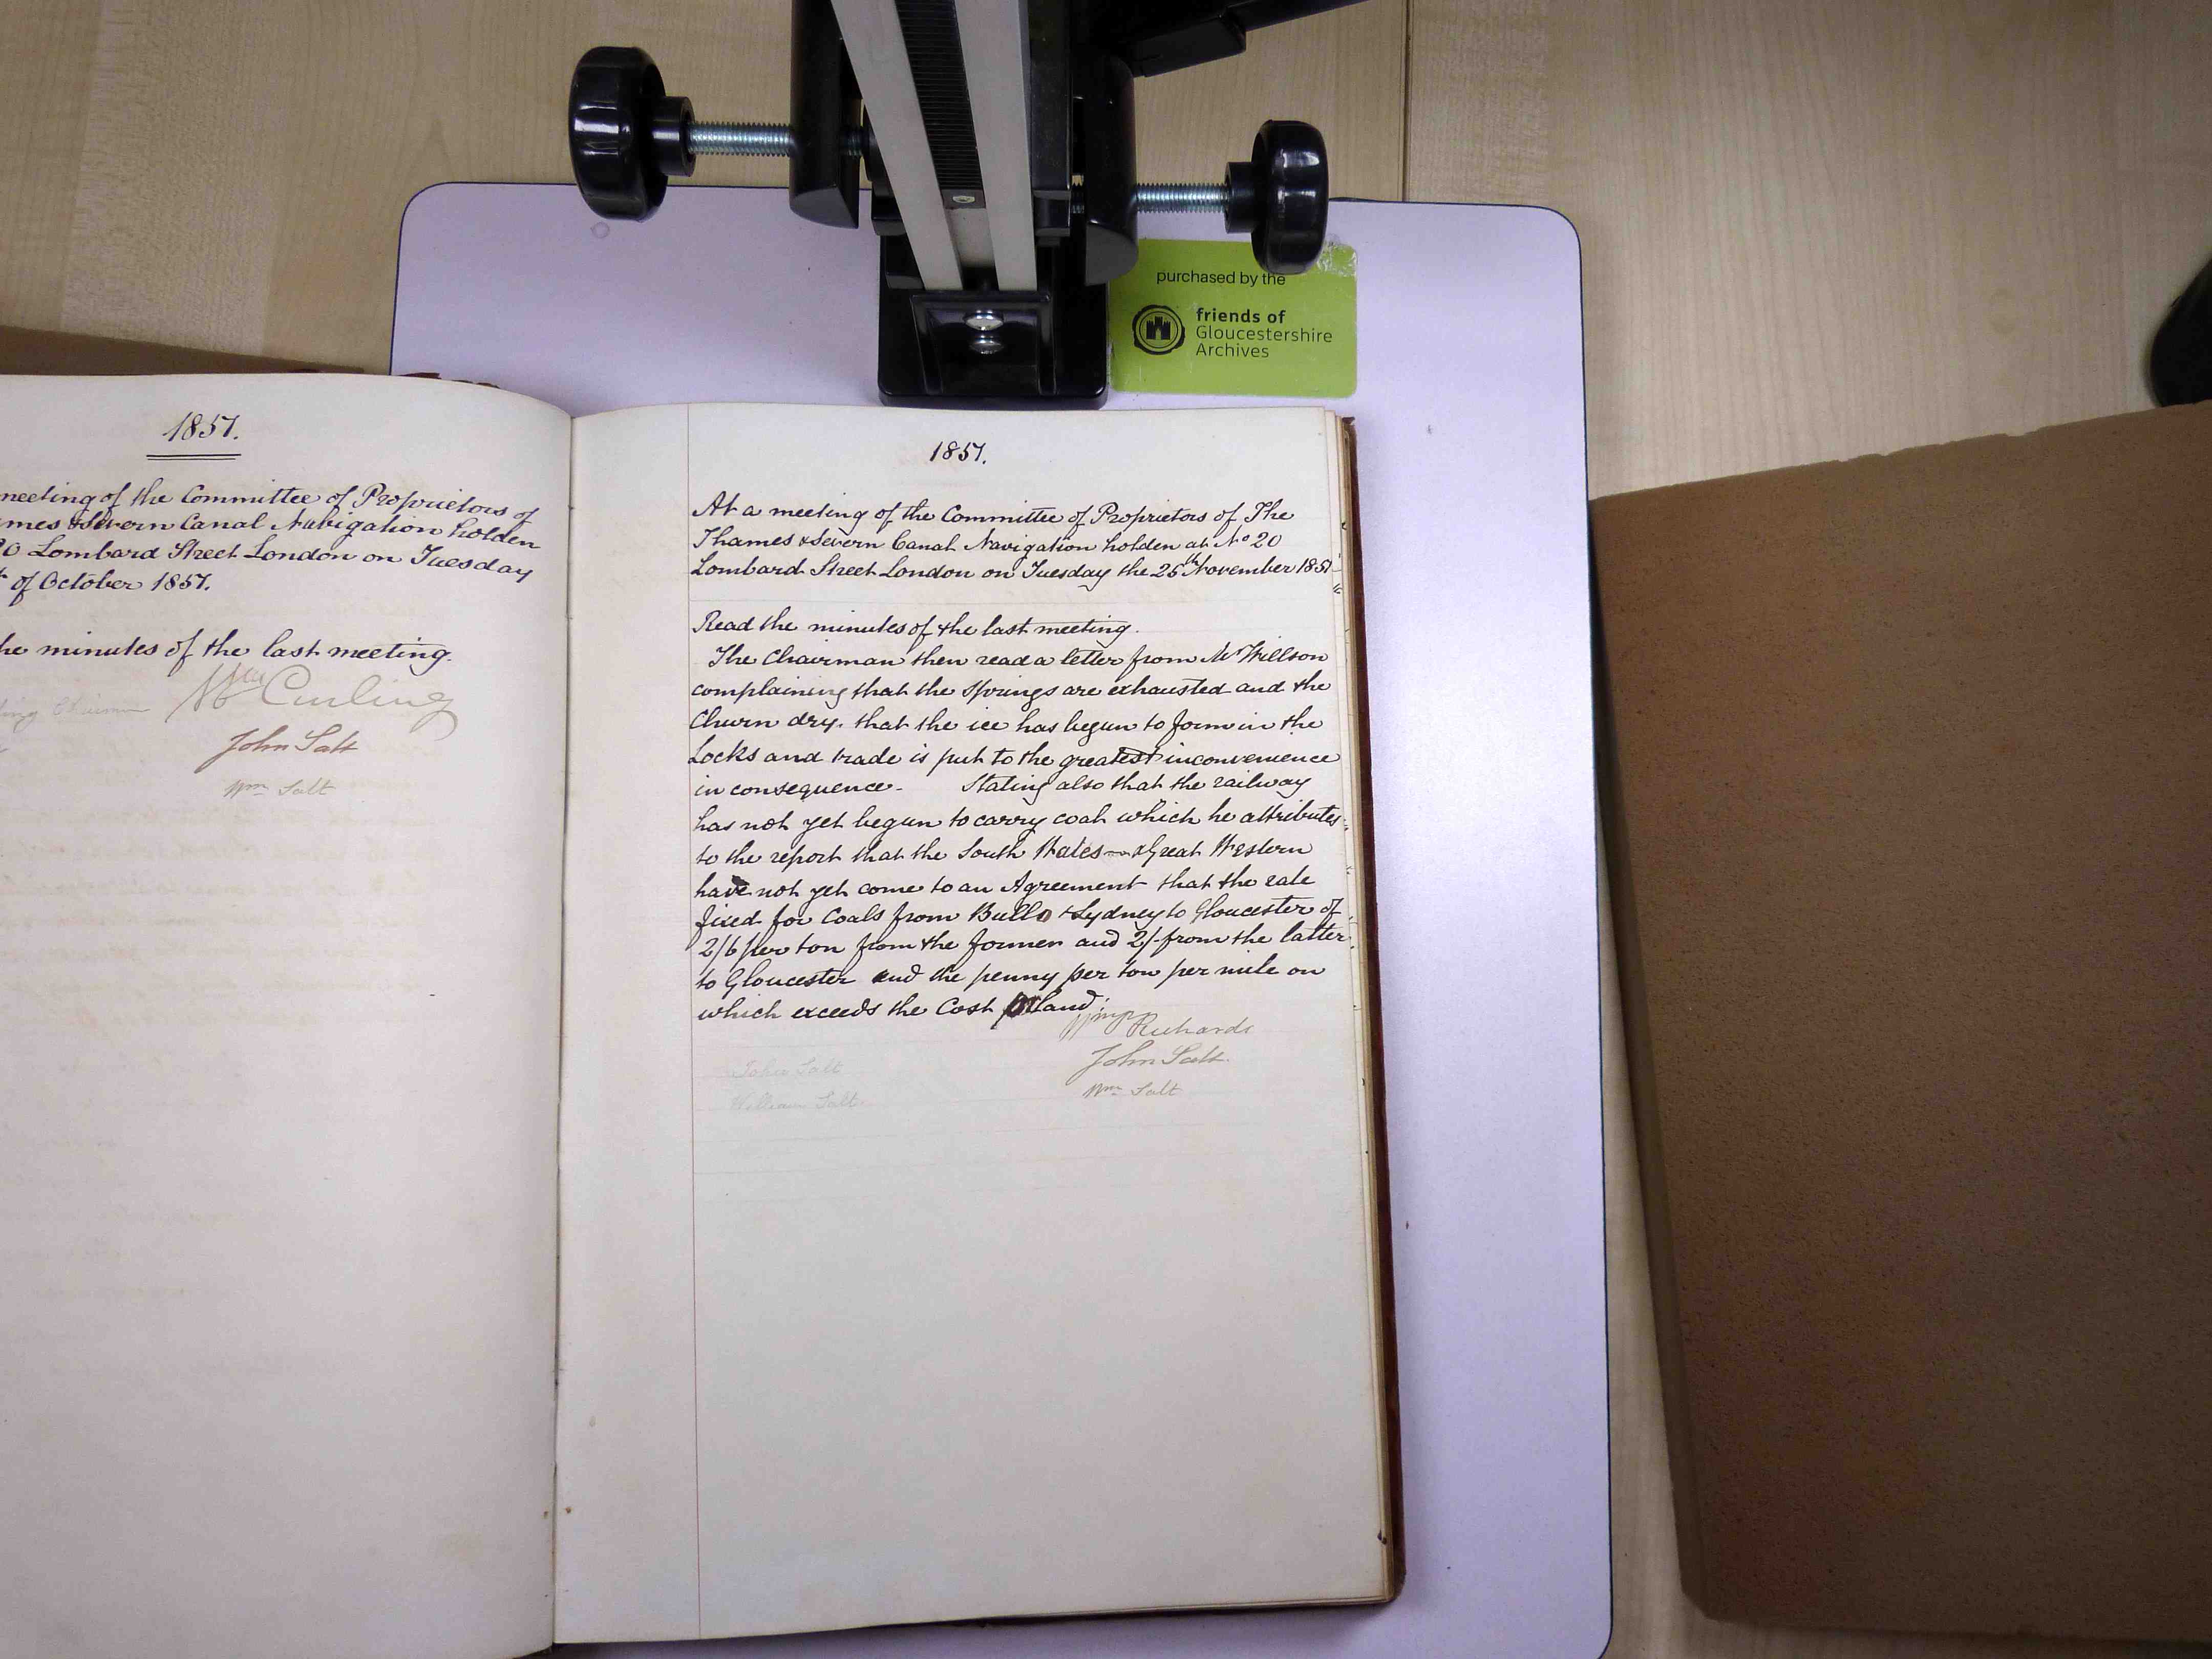 purchased by the
friends of
Gloucestershire
Archives
1851.
meeting of the Committee of Proprietors of
mes & Severn Canal Navigation holden
20 Lombard Street London on Tuesday
of October 1851.
he minutes of the last meeting.
Wm Curling
ing Chairman
John Salt
Wm Salt
1851.
At a meeting of the Committee of Proprietors of The
Thames & Severn Canal Navigation holden at No 20
Lombard Street London on Tuesday the 25th November 1851
Read the minutes of the last meeting.
The Chairman then read a letter from Mr Willson
complaining that the Springs are exhausted and the
Churn dry. that the ice has begun to form in the
Locks and trade is put to the greatest inconvenience
in consequence. Stating also that the railway
has not yet begun to carry coal which he attributes
to the report that the South Wales & Great Western
have not yet come to an Agreement that the rate
fixed for Coals from Bullo & Lydney to Gloucester of
2/6 per ton from the former and 2/- from the latter
to Gloucester and the penny per ton per mile on
which exceeds the Cost land.
Richards
John Salt
Wm Salt
John Salt
William Salt